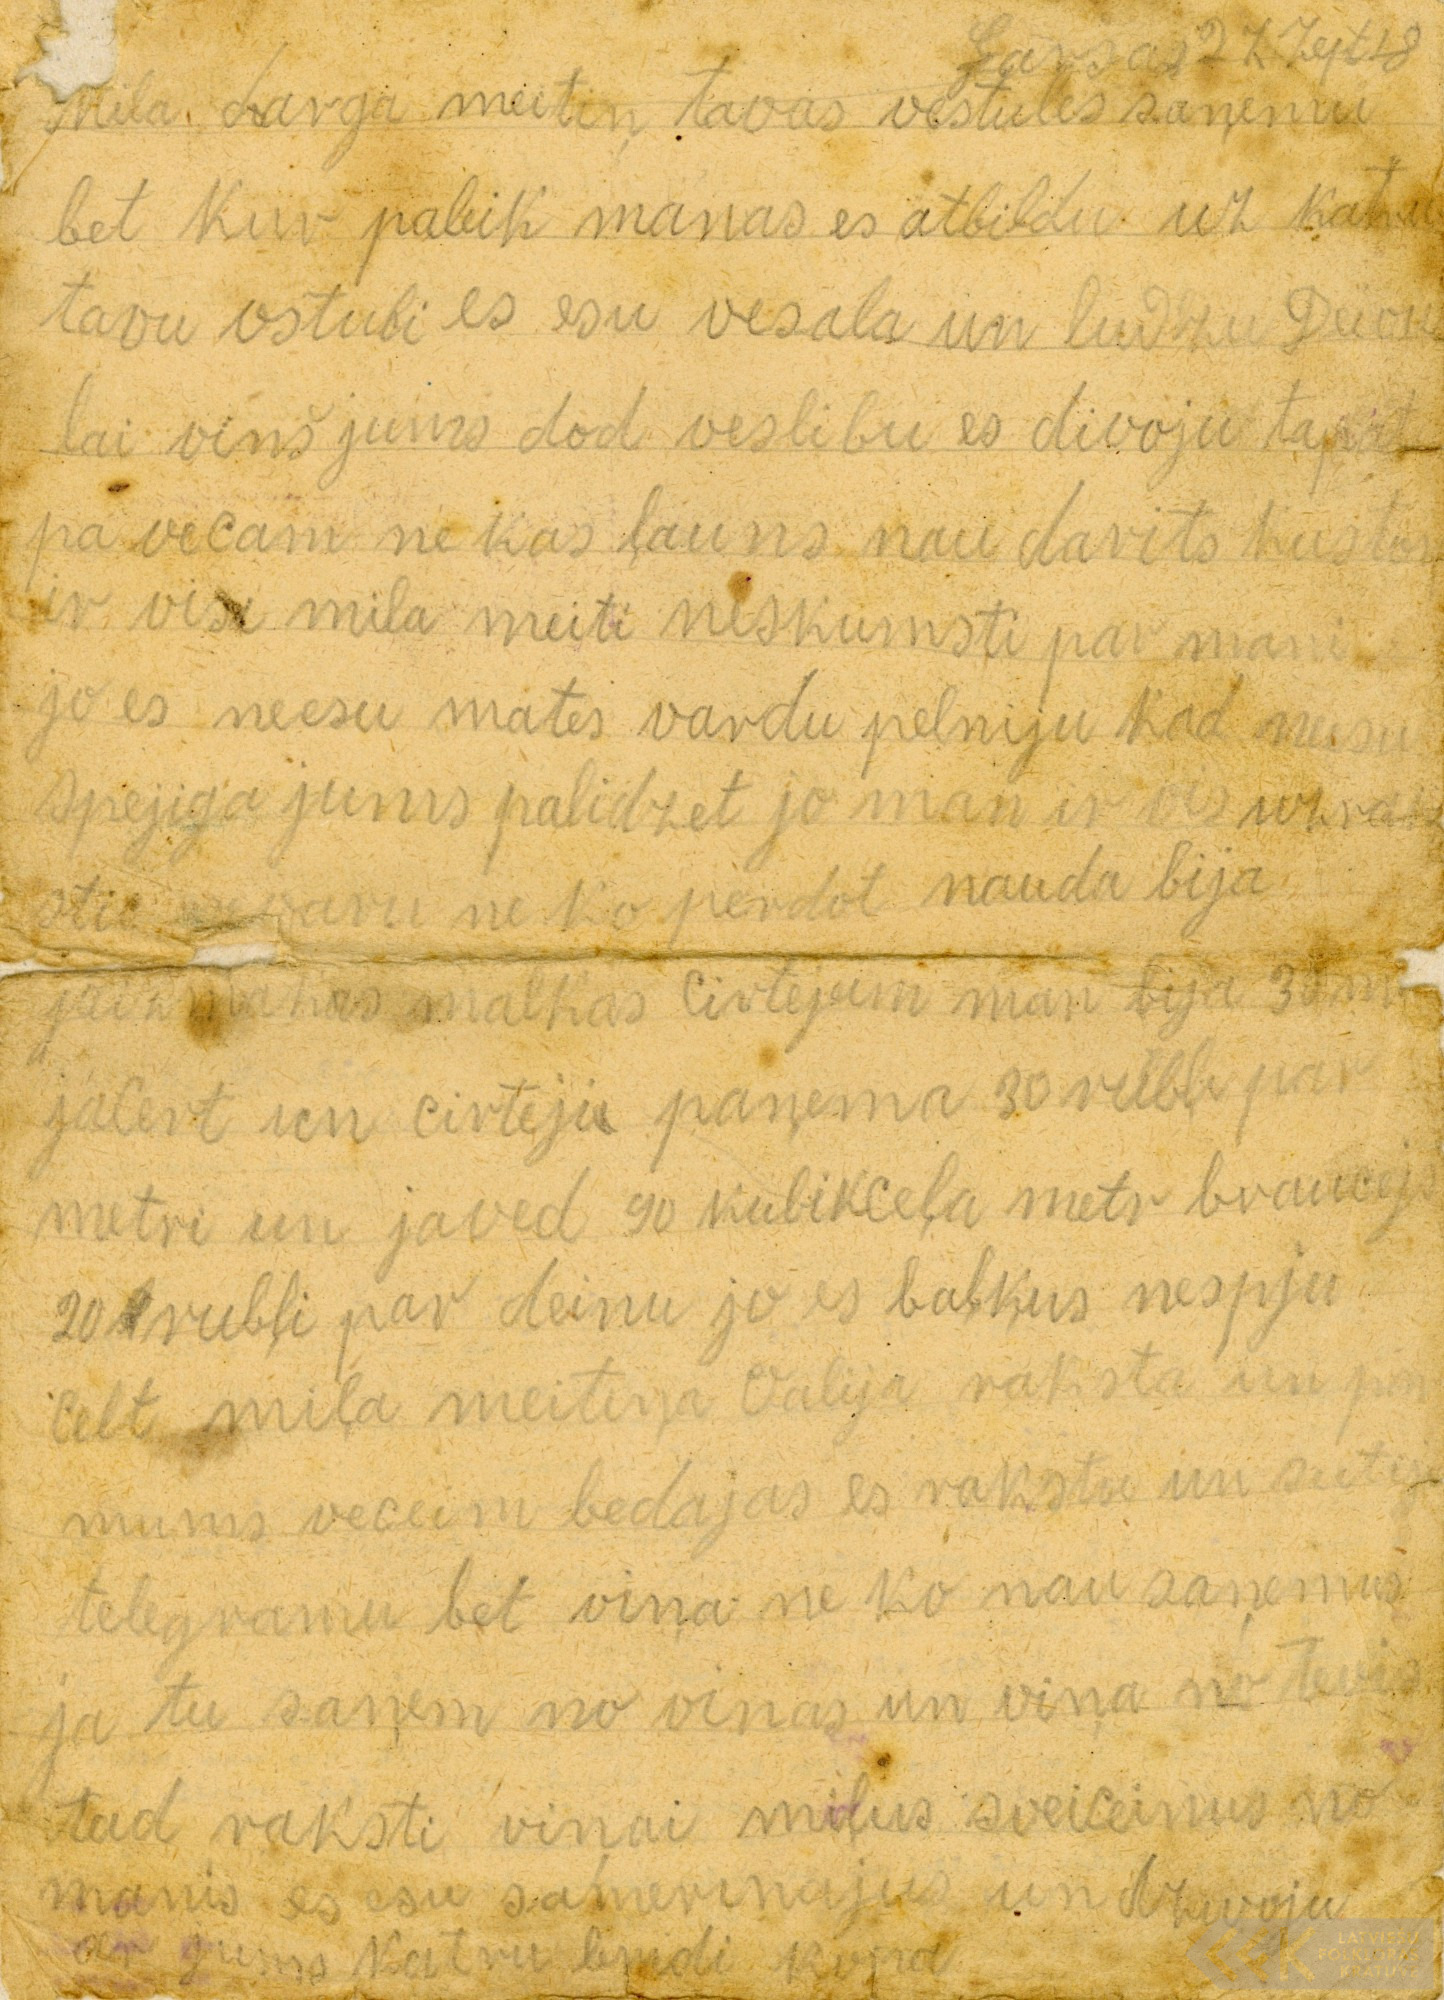 Garsas 27 Sept 48
Mila darga meitiņ tavas vestules saņemu
bet kur paliik manas es atbildu uz katru
tavu vstuli es esu vesala un ludzu
lai viņš jums dod veslibu es divoju tapat
pa vecam ne kas ļauns nau darits kustar
ir visi mila meiti neskumsti par mani
jo es neesu mates vardu pelniju kad neesu
spejiga jums palidzet jo man ir vis uzrak
stic nevaru ne ko perdot nauda bija
malkas cirtejam man bija 30 m
jacert un cirteji paņema 30 rubļi par
metri un javed 90 kubikceļa metr braucejs
20 rubļi par deinu jo es baļkus nespju
celt miļa meitiņa Valija raksta un
mums veceim bedajas es rakstu un sutij
telegramu bet viņa ne ko nau saņemus
ja tu saņem no viņas un viņa no tevis
tad raksti viņai miļus sveiceinus no
manis es esu samerinajus un dzuvoju
ar jums katru brudi kopa
LATVIEŠU
FOLKLORAS
KRĀTUVE